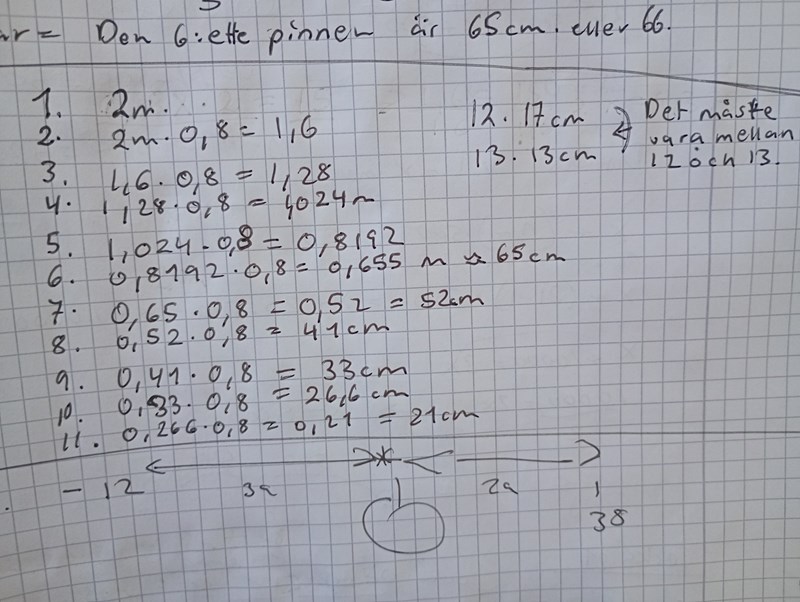 r = Den 6:ette pinnen är 65cm. eller 66.
1. 2m.
2. 2m · 0,8 = 1,6
3. 1,6 · 0,8 = 1,28
4. 1,28 · 0,8 = 1,024m
5. 1,024 · 0,8 = 0,8192
6. 0,8192 · 0,8 = 0,655 m ≈ 65cm
7. 0,65 · 0,8 = 0,52 = 52cm
8. 0,52 · 0,8 = 41cm
9. 0,41 · 0,8 = 33cm
10. 0,33 · 0,8 = 26,6 cm
11. 0,266 · 0,8 = 0,21 = 21cm
12. 17cm
13. 13cm
Det måste
vara mellan
12 och 13.
-12 3a 2a
38